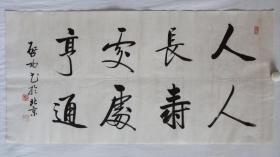 人人
長壽
處處
亨通
啓功書於北京